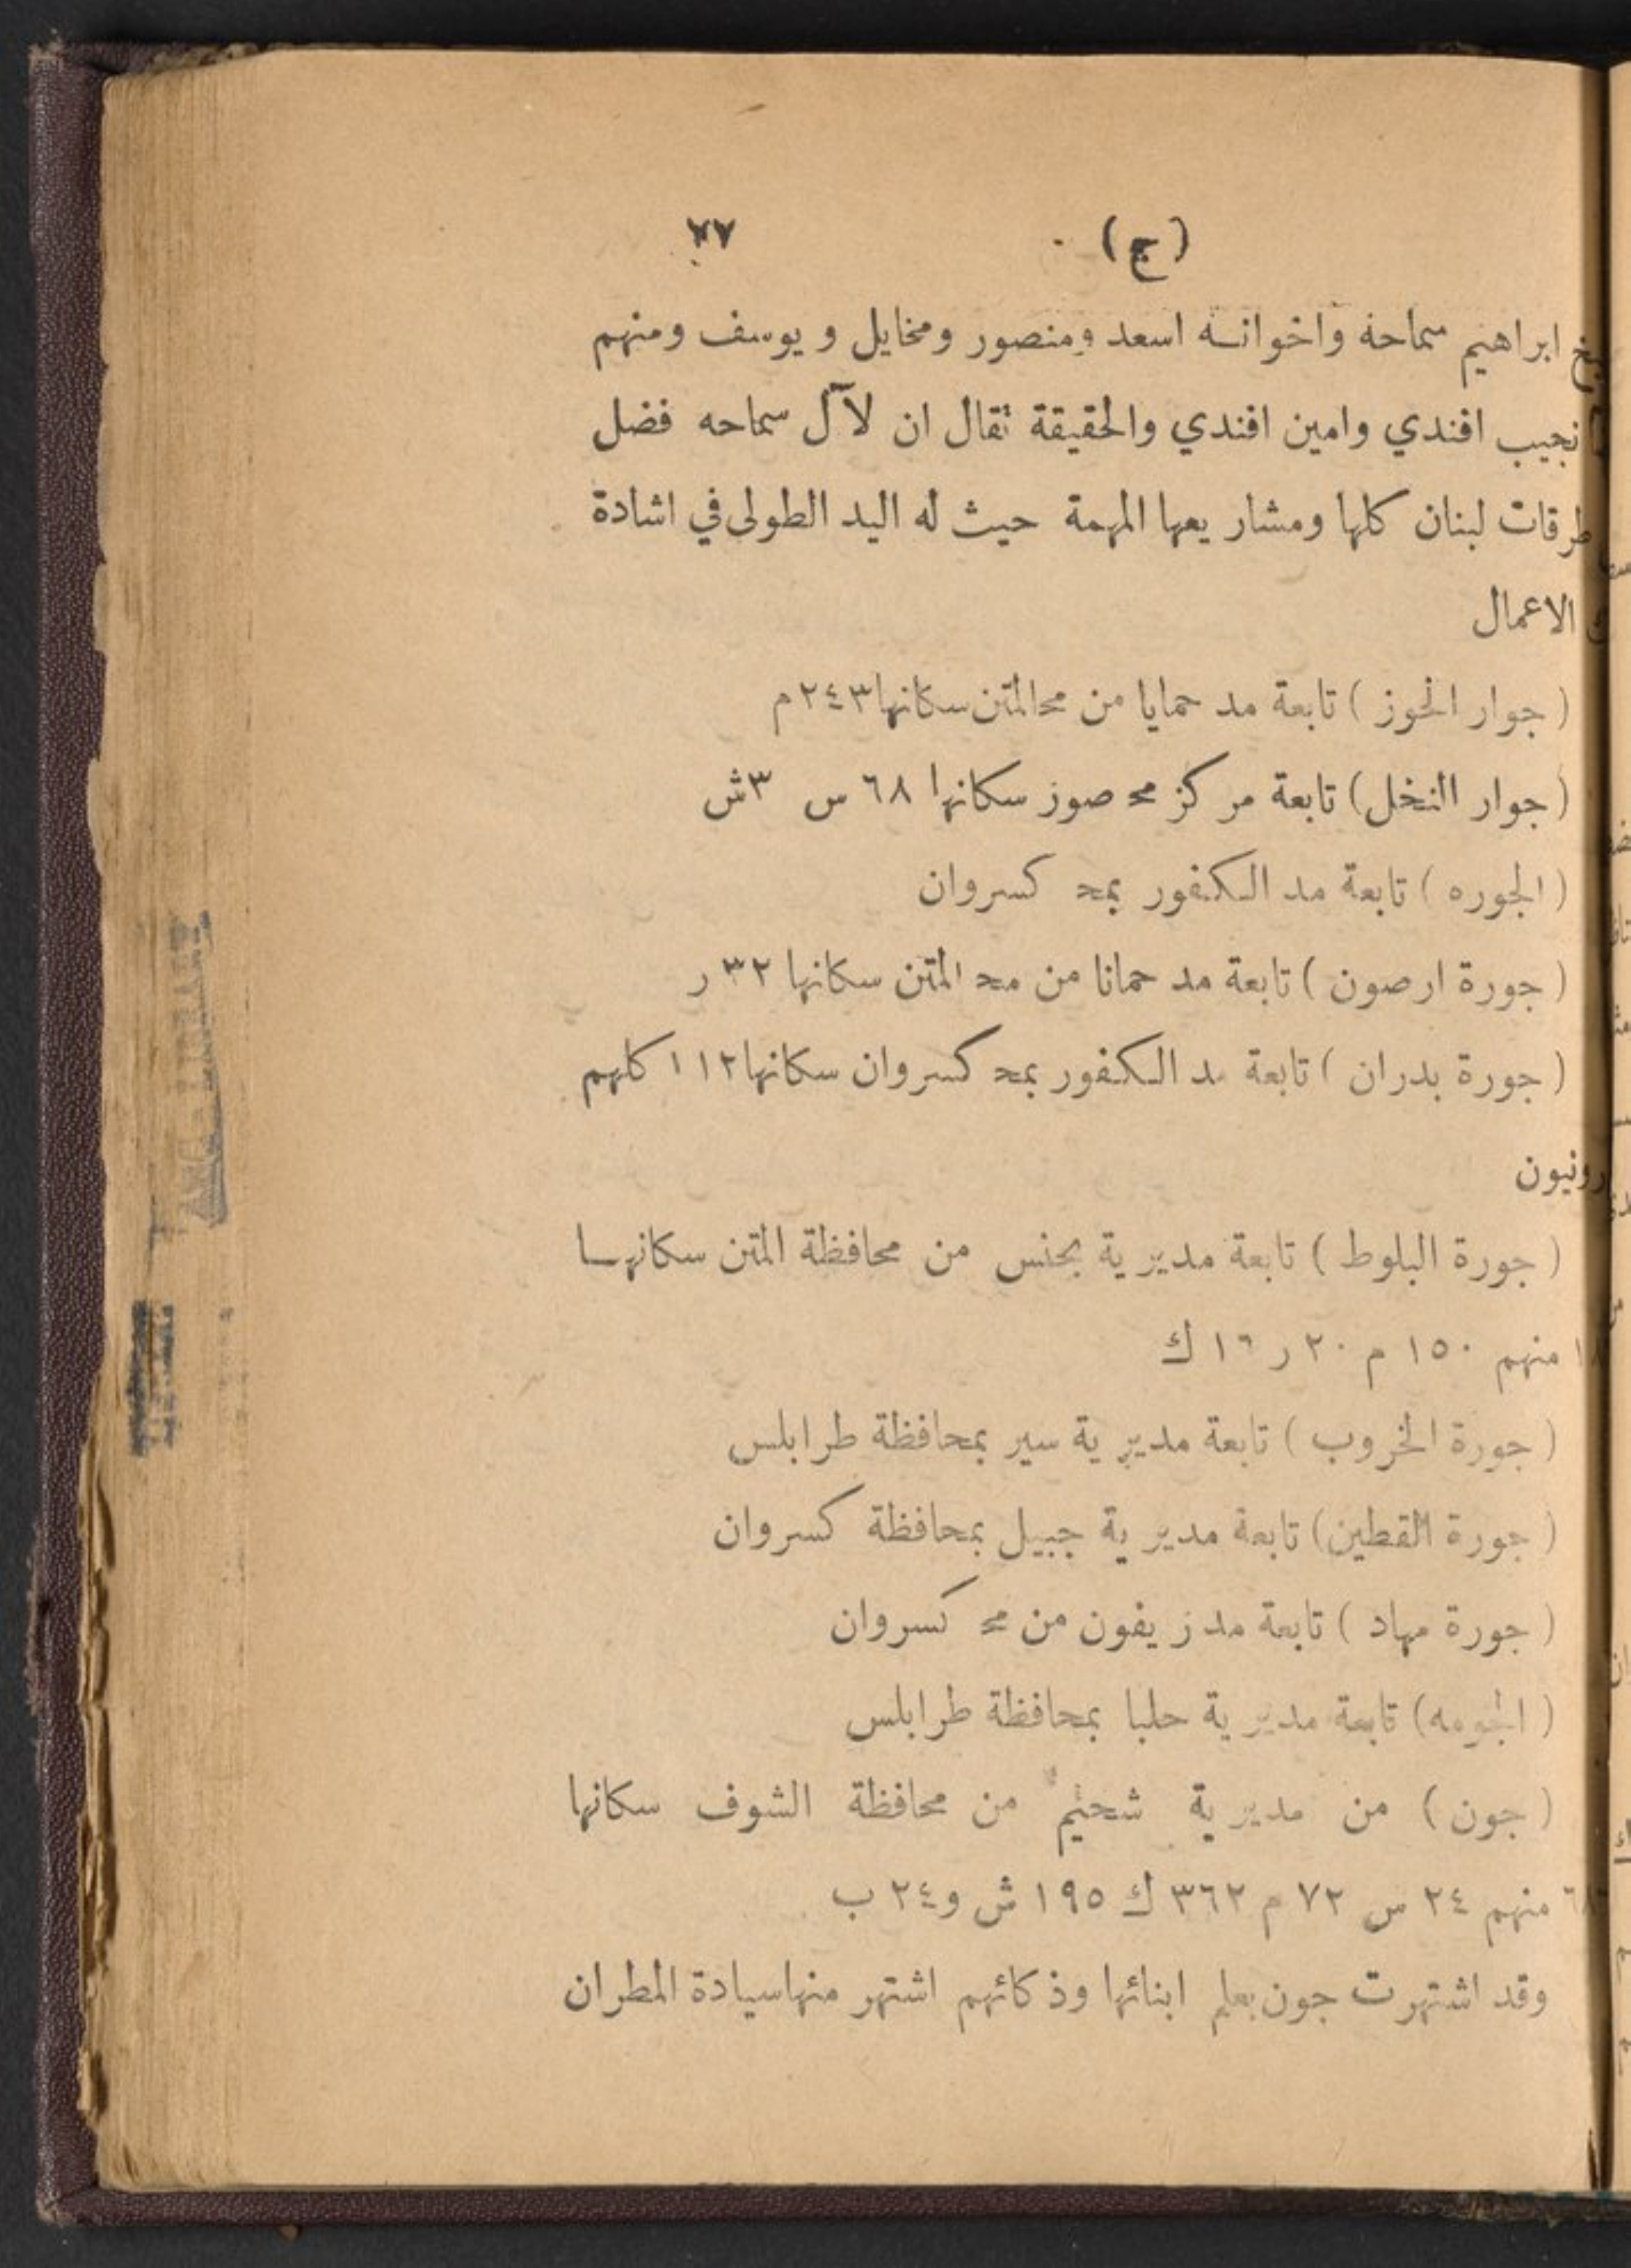 (ج) ٧٧
ابراهيم سماحه واخوانه اسعد ومنصور ومخايل ويوسف ومنهم
نجيب افندي وامين افندي والحقيقة تقال ان لآل سماحه فضل
طرقات لبنان كلها ومشاريعها المهمة حيث له اليد الطولى في اشادة
الاعمال
( جوار الحوز ) تابعة مد حمايا من محالمتن سكانها ٢٤٣ م
( جوار النخل ) تابعة مركز مح صوز سكانها ٦٨ س ٣ش
( الجوره ) تابعة مد الكفور بمحـ كسروان
( جورة ارصون ) تابعة مد حمانا من محـ المتن سكانها ٣٢ ر
( جورة بدران ) تابعة مد الكفور بمحـ كسروان سكانها ١١٢ كلهم
رونيون
( جورة البلوط ) تابعة مديرية بحنس من محافظة المتن سكانها
منهم ١٥٠ م ٢٠ ر ١٦ ك
( جورة الخروب ) تابعة مديرية سير بمحافظة طرابلس
( جورة القطين ) تابعة مديرية جبيل بمحافظة كسروان
( جورة مهاد ) تابعة مد زيفون من مح كسروان
( الجومه ) تابعة مديرية حلبا بمحافظة طرابلس
( جون ) من مديرية شحيم من محافظة الشوف سكانها
منهم ٢٤ س ٧٢ م ٣٦٢ ك ١٩٥ ش و٢٤ ب
وقد اشتهرت جون بعلم ابنائها وذكائهم اشتهر منها سيادة المطران